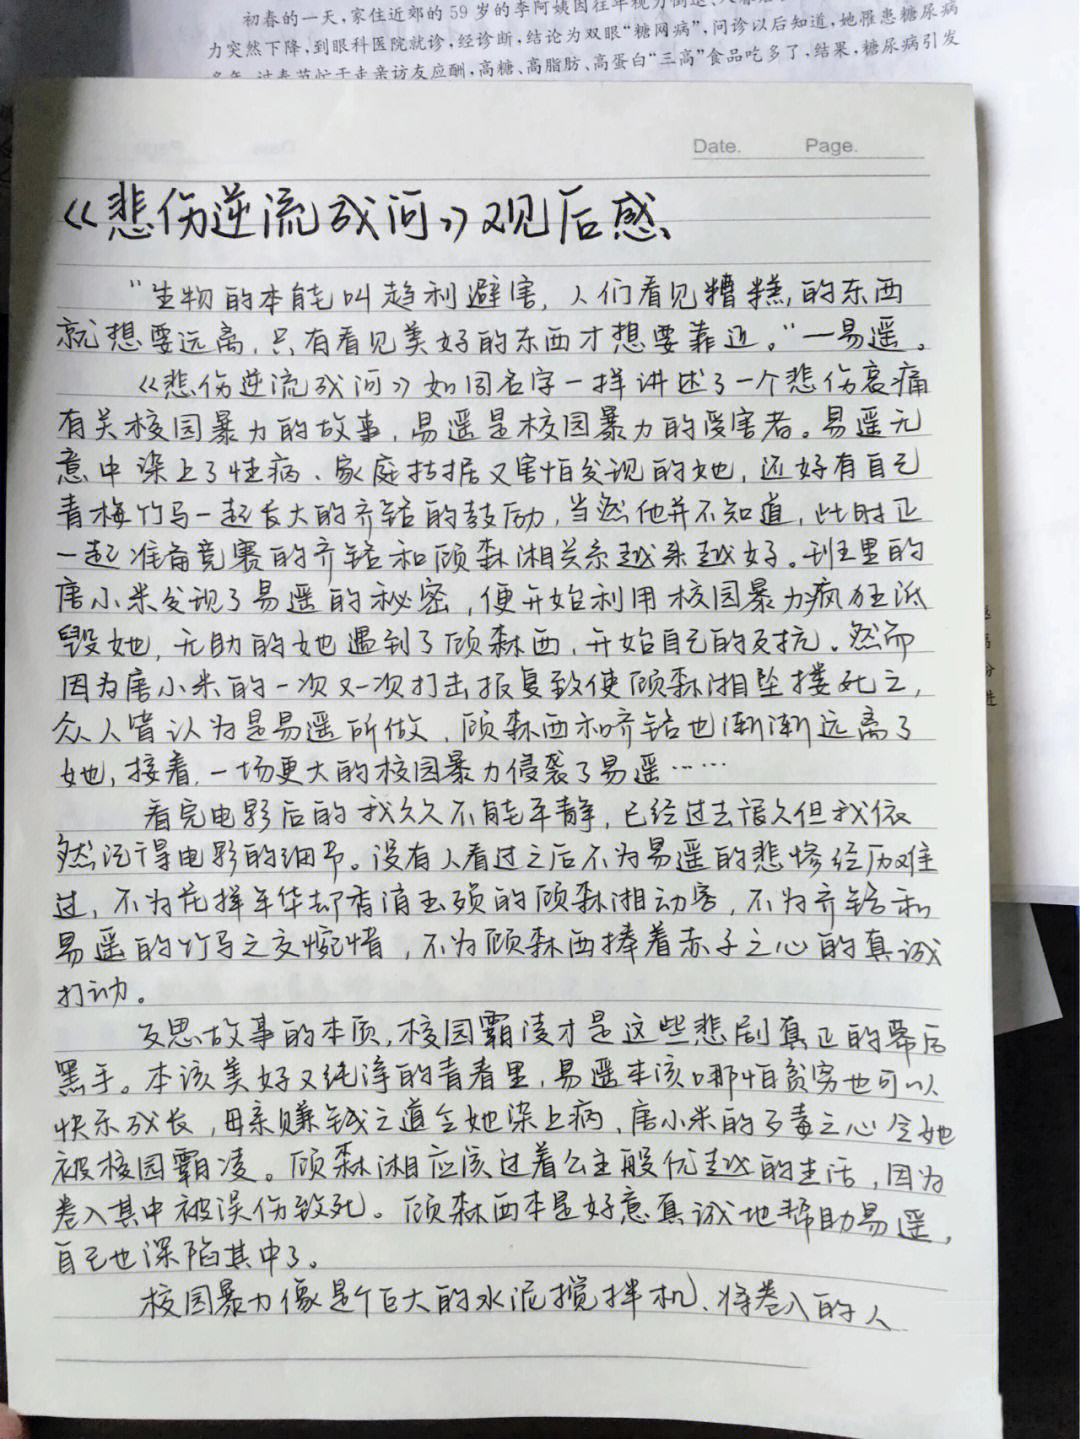 初春的一天,家住近郊的59岁的李阿姨因
力突然下降,到眼科医院就诊,经诊断,结论为双眼“糖网病”,问诊以后知道,她罹患糖尿病
多年,过春节忙于走亲访友应酬,高糖、高脂肪、高蛋白“三高”食品吃多了,结果,糖尿病引发
Date. Page.
《悲伤逆流成河》观后感
“生物的本能叫趋利避害,人们看见糟糕,的东西
就想要远离,只有看见美好的东西才想要靠近。”—易遥。
《悲伤逆流成河》如同名字一样讲述了一个悲伤哀痛
有关校园暴力的故事,易遥是校园暴力的受害者。易遥无
意中染上了性病、家庭拮据又害怕发现的她,还好有自己
青梅竹马一起长大的齐铭的鼓励,当然他并不知道,此时正
一起准备竞赛的齐铭和顾森湘关系越来越好。班里的
唐小米发现了易遥的秘密,便开始利用校园暴力疯狂诋
毁她,无助的她遇到了顾森西,开始自己的反抗。然而
因为唐小米的一次又一次打击报复致使顾森湘坠楼死亡,
众人皆认为是易遥所做,顾森西和齐铭也渐渐远离了
她,接着,一场更大的校园暴力侵袭了易遥……
看完电影后的我久久不能平静,已经过去很久但我依
然记得电影的细节。没有人看过之后不为易遥的悲惨经历难
过,不为花样年华却香消玉殒的顾森湘动容,不为齐铭和
易遥的竹马之交惋惜,不为顾森西捧着赤子之心的真诚
打动。
反思故事的本质,校园霸凌才是这些悲剧真正的幕后
黑手。本该美好又纯净的青春里,易遥本该哪怕贫穷也可以
快乐成长,母亲赚钱之道令她染上病,唐小米的歹毒之心令她
被校园霸凌。顾森湘应该过着公主般优越的生活,因为
卷入其中被误伤致死。顾森西本是好意真诚地帮助易遥,
自己也深陷其中了。
校园暴力像是个巨大的水泥搅拌机、将卷入的人